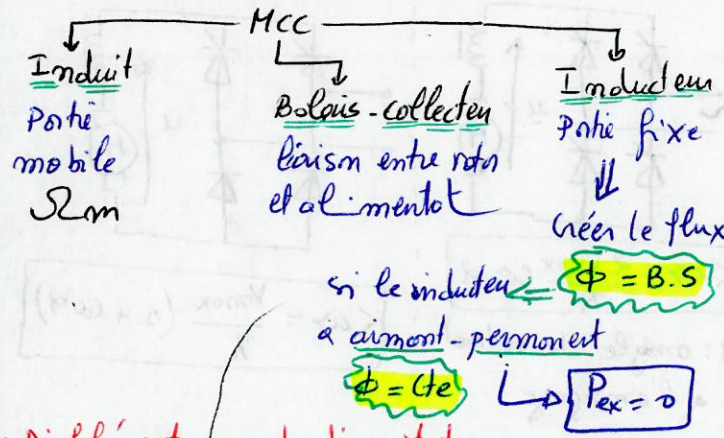 MCC
Induit
Partie
mobile
Ωm
Balais-collecteu
liaison entre roto
et alimentat
Inducteur
Partie fixe
Créer le flux
Φ = B.S
si le inducteu
à aimant-permanent
Φ = Cte
Pex = 0